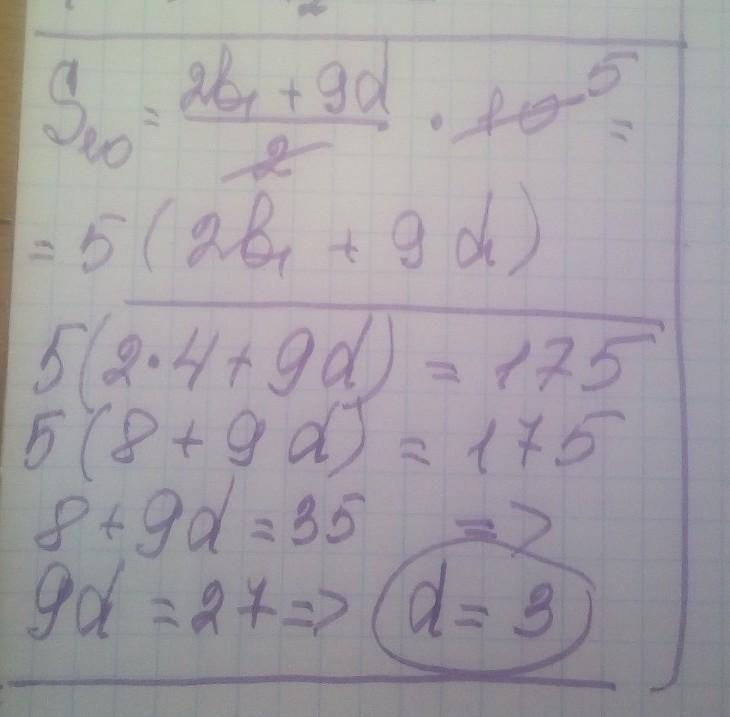 2
S₁₀ = (2b₁ + 9d)/2 · 10 5 =
= 5 ( 2b₁ + 9d )
5(2·4 + 9d) = 175
5(8 + 9d) = 175
8 + 9d = 35 =>
9d = 27 => d = 3